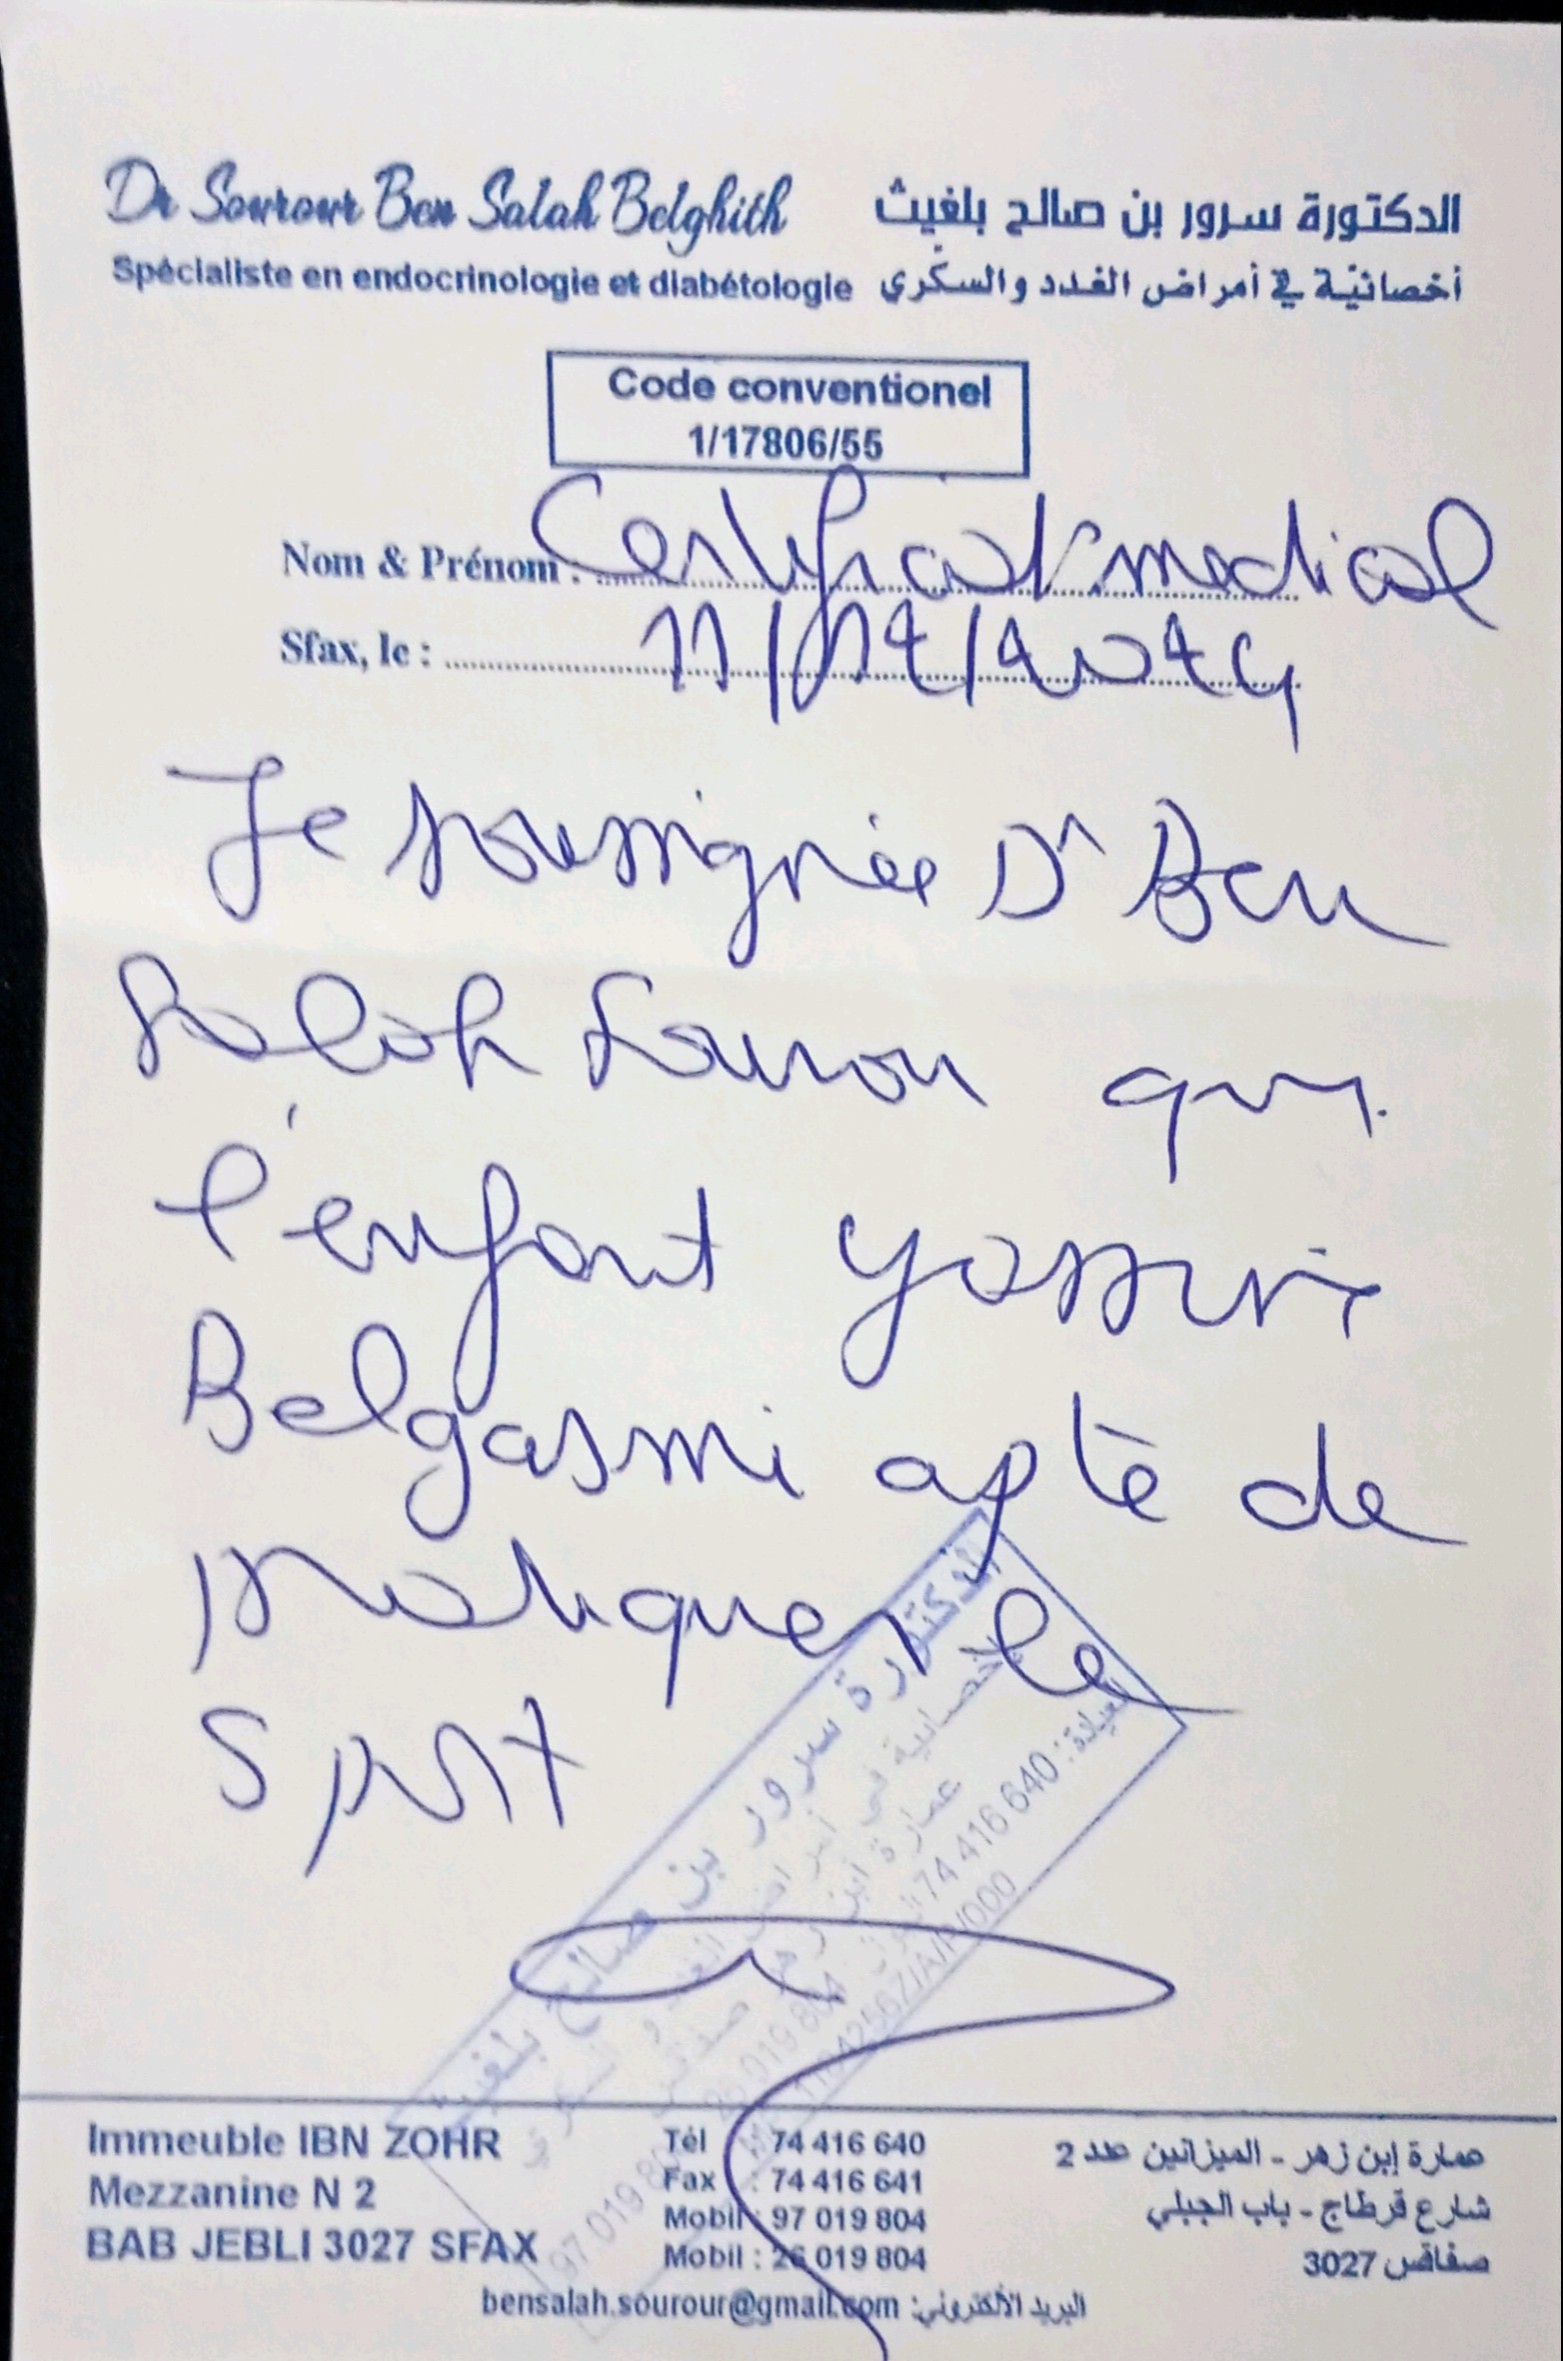 Dr Sourour Ben Salah Belghith
الدكتورة سرور بن صالح بلغيث
Spécialiste en endocrinologie et diabétologie
أخصائيّة في أمراض الغدد والسكّري
Code conventionel
1/17806/55
Nom & Prénom : Certificat medical
Sfax, le : 11/12/2024
Je soussignée Dr Ben
Salah Sourou que
l'enfant Yassine
Belgasmi apte de
pratiquer le
sport
الدكتورة سرور بن صالح بلغيث
العيادة: 74 416 640
Immeuble IBN ZOHR
Mezzanine N 2
BAB JEBLI 3027 SFAX
Tél : 74 416 640
Fax : 74 416 641
Mobil : 97 019 804
Mobil : 26 019 804
عمارة إبن زهر - الميزانين عدد 2
شارع قرطاج - باب الجبلي
صفاقس 3027
bensalah.sourour@gmail.com :البريد الألكتروني